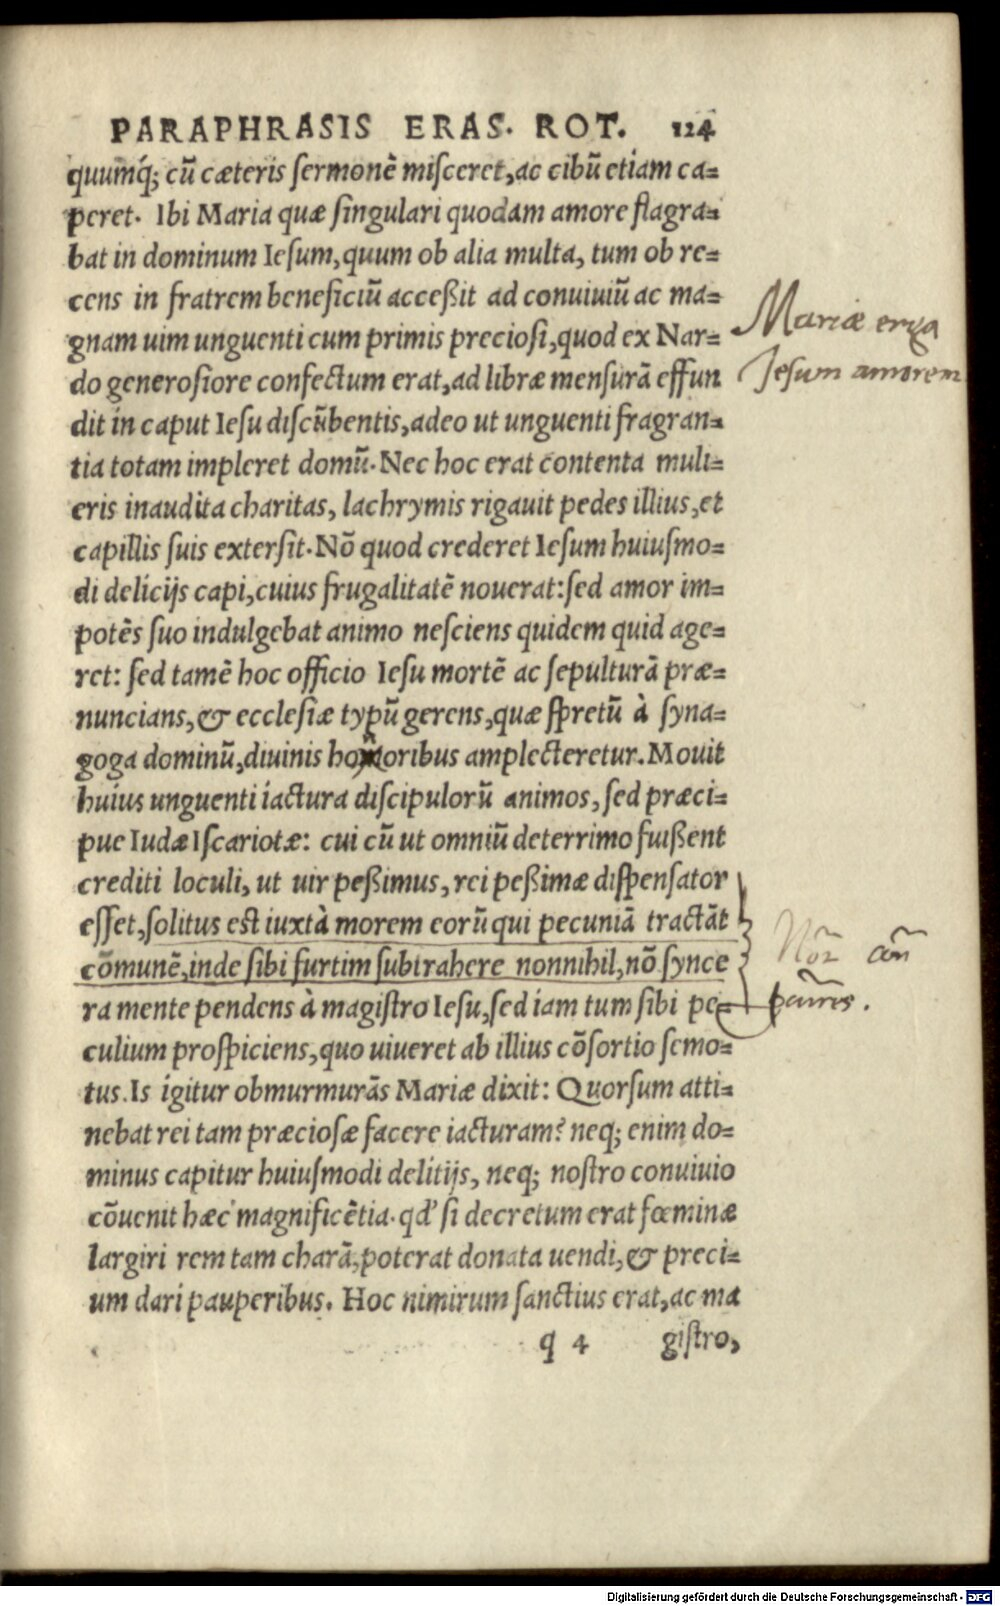 PARAPHRASIS ERAS. ROT. 124
quumq́; cũ cæteris ſermonẽ miſceret, ac cibũ etiam ca=
peret. Ibi Maria quæ ſingulari quodam amore flagra=
bat in dominum Ieſum, quum ob alia multa, tum ob re=
cens in fratrem beneficiũ acceßit ad conuiuiũ ac ma=
gnam uim unguenti cum primis precioſi, quod ex Nar=
do generoſiore confectum erat, ad libræ menſurã effun
dit in caput Ieſu diſcũbentis, adeo ut unguenti fragran=
tia totam impleret domũ. Nec hoc erat contenta muli=
eris inaudita charitas, lachrymis rigauit pedes illius, et
capillis ſuis exterſit. Nõ quod crederet Ieſum huiuſmo=
di delicijs capi, cuius frugalitatẽ nouerat: ſed amor im=
potẽs ſuo indulgebat animo neſciens quidem quid age=
ret: ſed tamẽ hoc officio Ieſu mortẽ ac ſepulturã præ=
nuncians, & eccleſiæ typũ gerens, quæ ſpretũ à ſyna=
goga dominũ, diuinis honoribus amplecteretur. Mouit
huius unguenti iactura diſcipulorũ animos, ſed præci=
pue Iudæ Iſcariotæ: cui cũ ut omniũ deterrimo fuißent
crediti loculi, ut uir peßimus, rei peßimæ diſpenſator
eſſet, ſolitus est iuxtà morem eorũ qui pecuniã tractãt
cõmunẽ, inde ſibi furtim ſubtrahere nonnihil, nõ ſynce
ra mente pendens à magiſtro Ieſu, ſed iam tum ſibi pe=
culium proſpiciens, quo uiueret ab illius cõſortio ſemo=
tus. Is igitur obmurmurãs Mariæ dixit: Quorſum atti=
nebat rei tam præcioſæ facere iacturam? neq; enim do=
minus capitur huiuſmodi delitijs, neq; noſtro conuiuio
cõuenit hæc magnificẽtia. qd' ſi decretum erat fœminæ
largiri rem tam charã, poterat donata uendi, & preci=
um dari pauperibus. Hoc nimirum ſanctius erat, ac ma
q 4 giſtro,
Mariæ erga
Jesum amorem